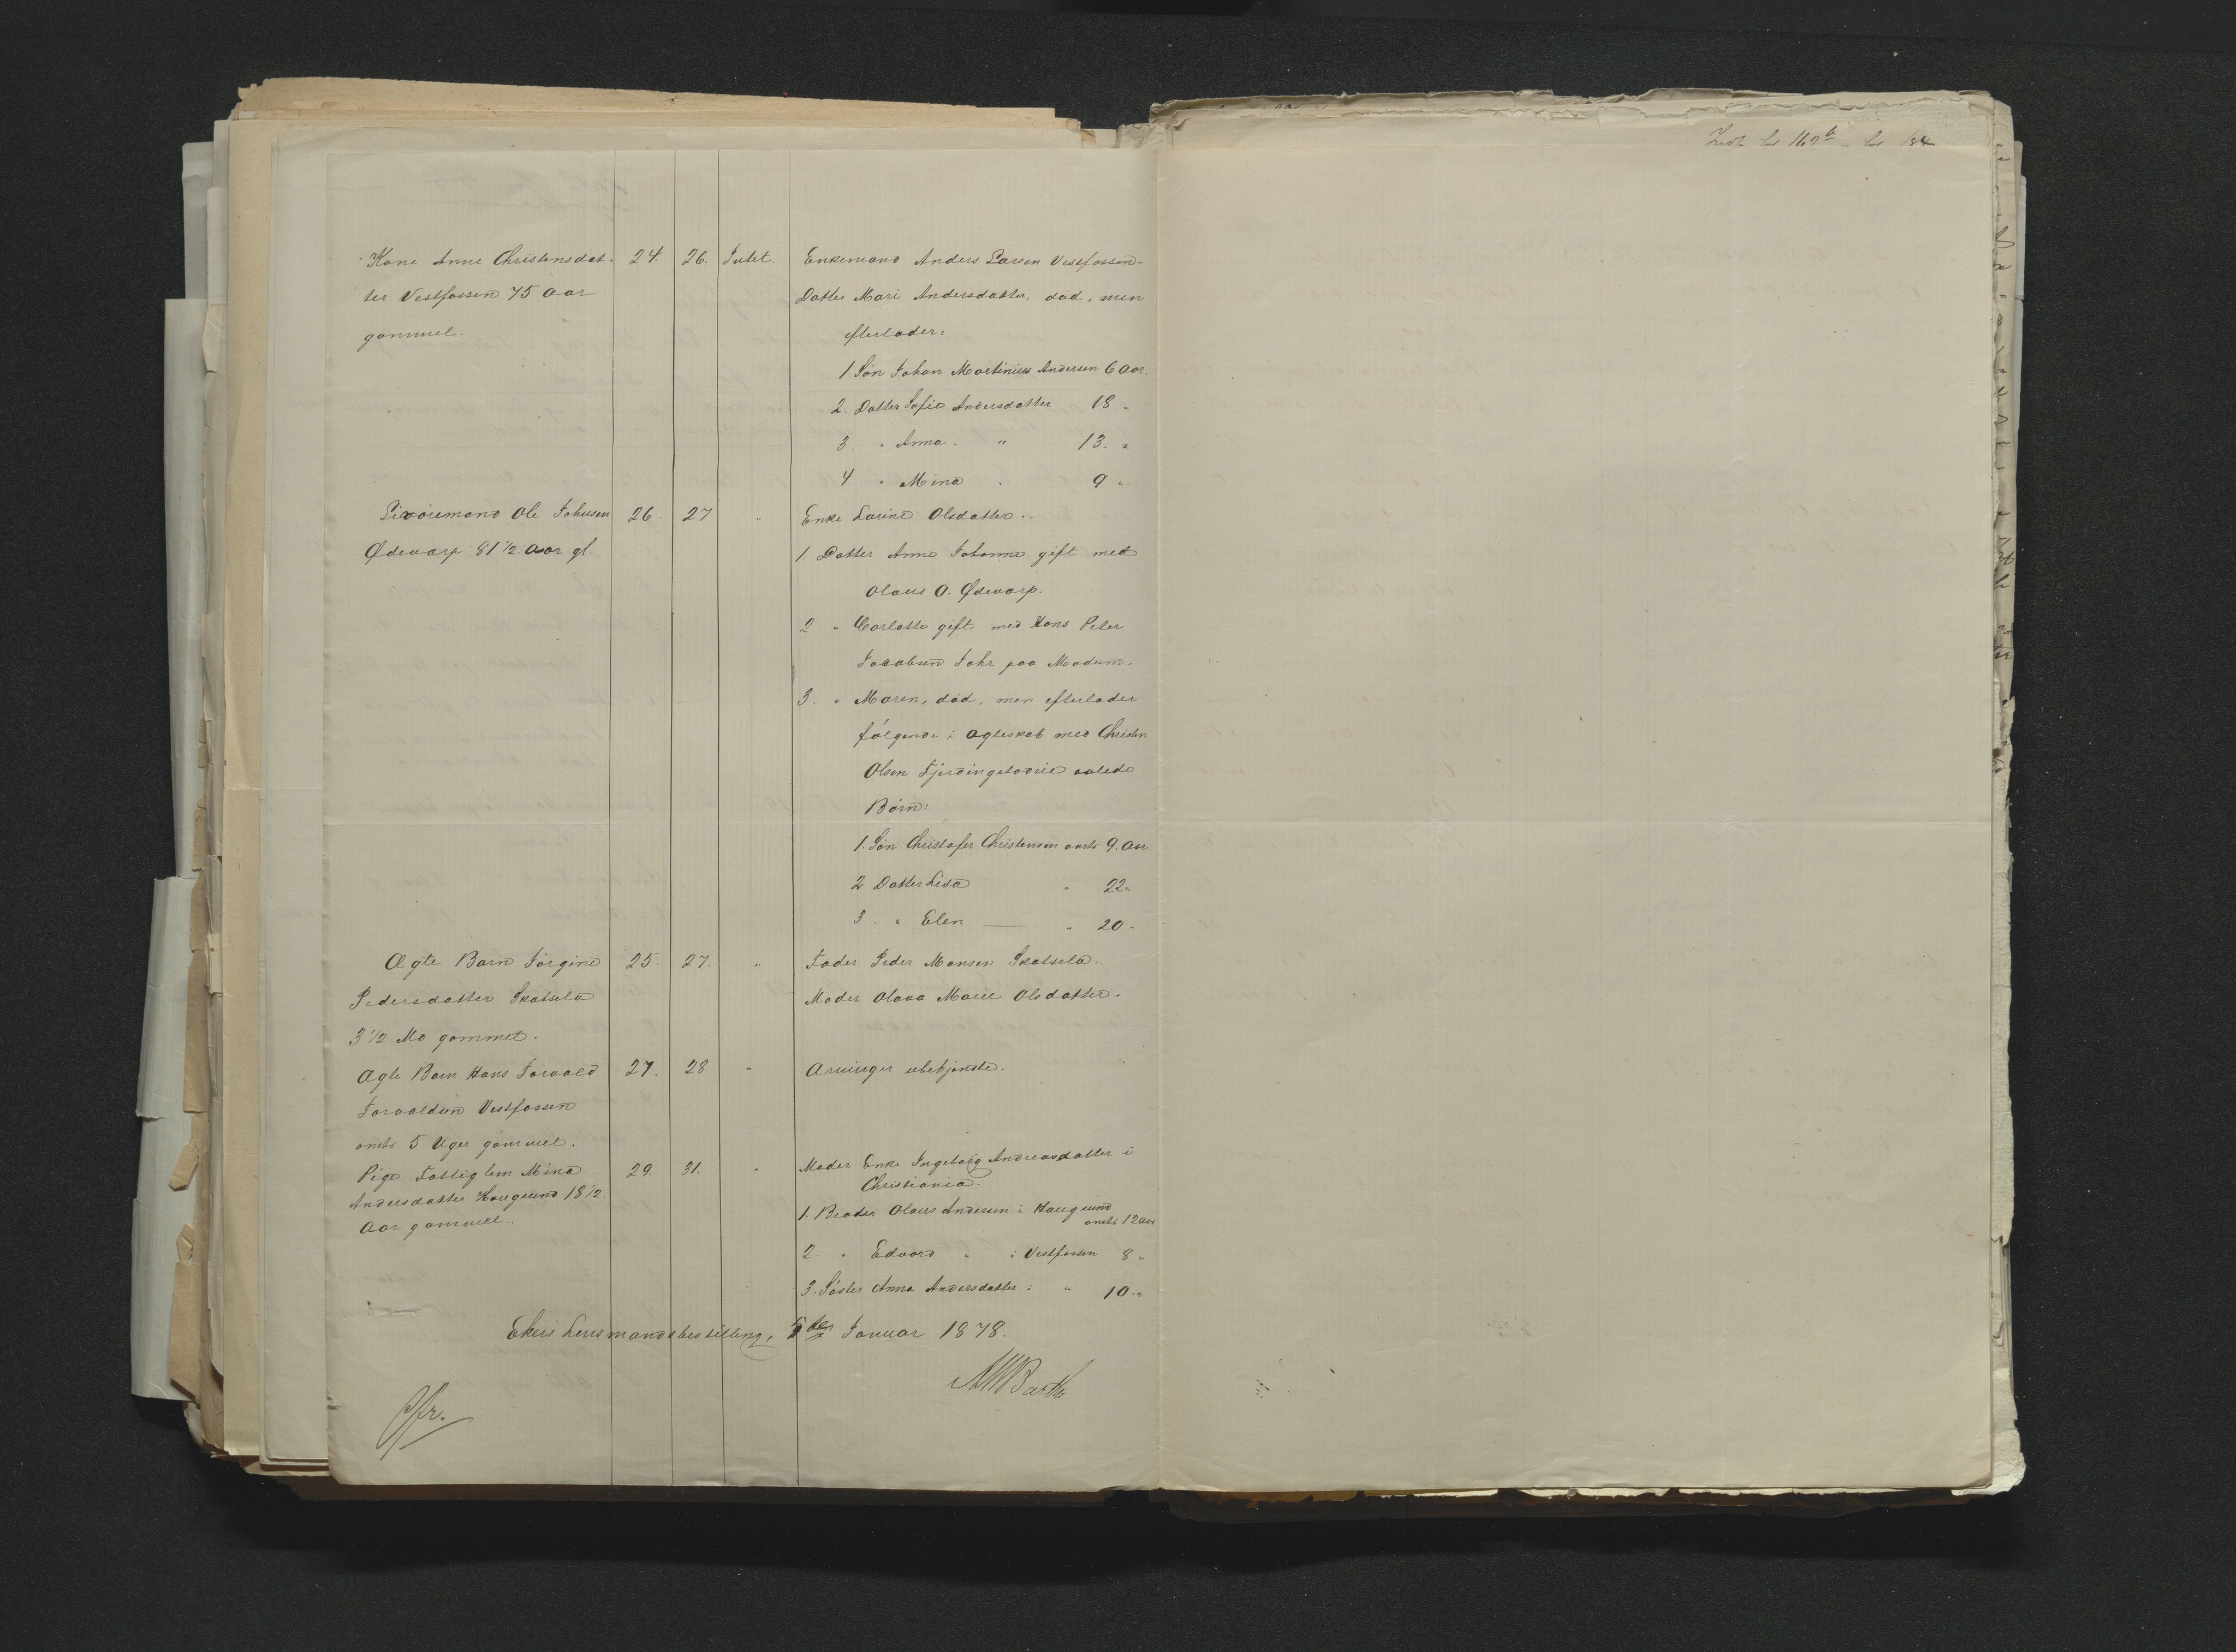 Kone Anne Christensdat- 24. 26. Intet. Enkemand Anders Larsen Vestfossen.
ter Vestfossen 75 Aar Datter Mari Andersdatter, død, men
gammel. efterlader:
1 Søn Johan Martinius Andersen 6 Aar.
2. Datter Sofie Andersdatter 18 "
3. " Anna " 13. "
4 " Mina " 9 "
Livøremand Ole Johnsen 26. 27 " Enke Larine Olsdatter.
Ødevarp 81 1/2 Aar gl. 1. Datter Anne Johanne gift med
Olaus O. Ødevarp.
2 " Carlotte gift med Hans Peter
Jacobsen paa Modum.
3. " Maren, død, men efterlader
følgende i Ægteskab med Christen
Olsen avlede
Børn:
1. Søn Christofer Christensen omtr 9. Aar
2 Datter Lisa " 22 "
3. " Elen — " 20 "
Ægte Barn Jørgine 25. 27. " Fader Peder Monsen Skotselv.
Pedersdatter Skotselv Moder Olava Marie Olsdatter.
3 1/2 Md gammel.
Ægte Barn Hans Torvald 27. 28 " Arvinger ubekjendte.
Torvaldsen Vestfossen
omtr 5 Uger gammel.
Pige Fattiglem Mina 29. 31. " Moder Enke Ingeborg Andreasdatter i
Andersdatter Haugsund 18 1/2 Christiania.
Aar gammel. 1. Broder Olaus Andersen i Haugsund omtr 12 Aar
2. " Edvard " i Vestfossen 8 "
3. Søster Anna Andersdatter i " 10 "
Ekers Lensmandsbestilling, 5te Januar 1878.
MBarth